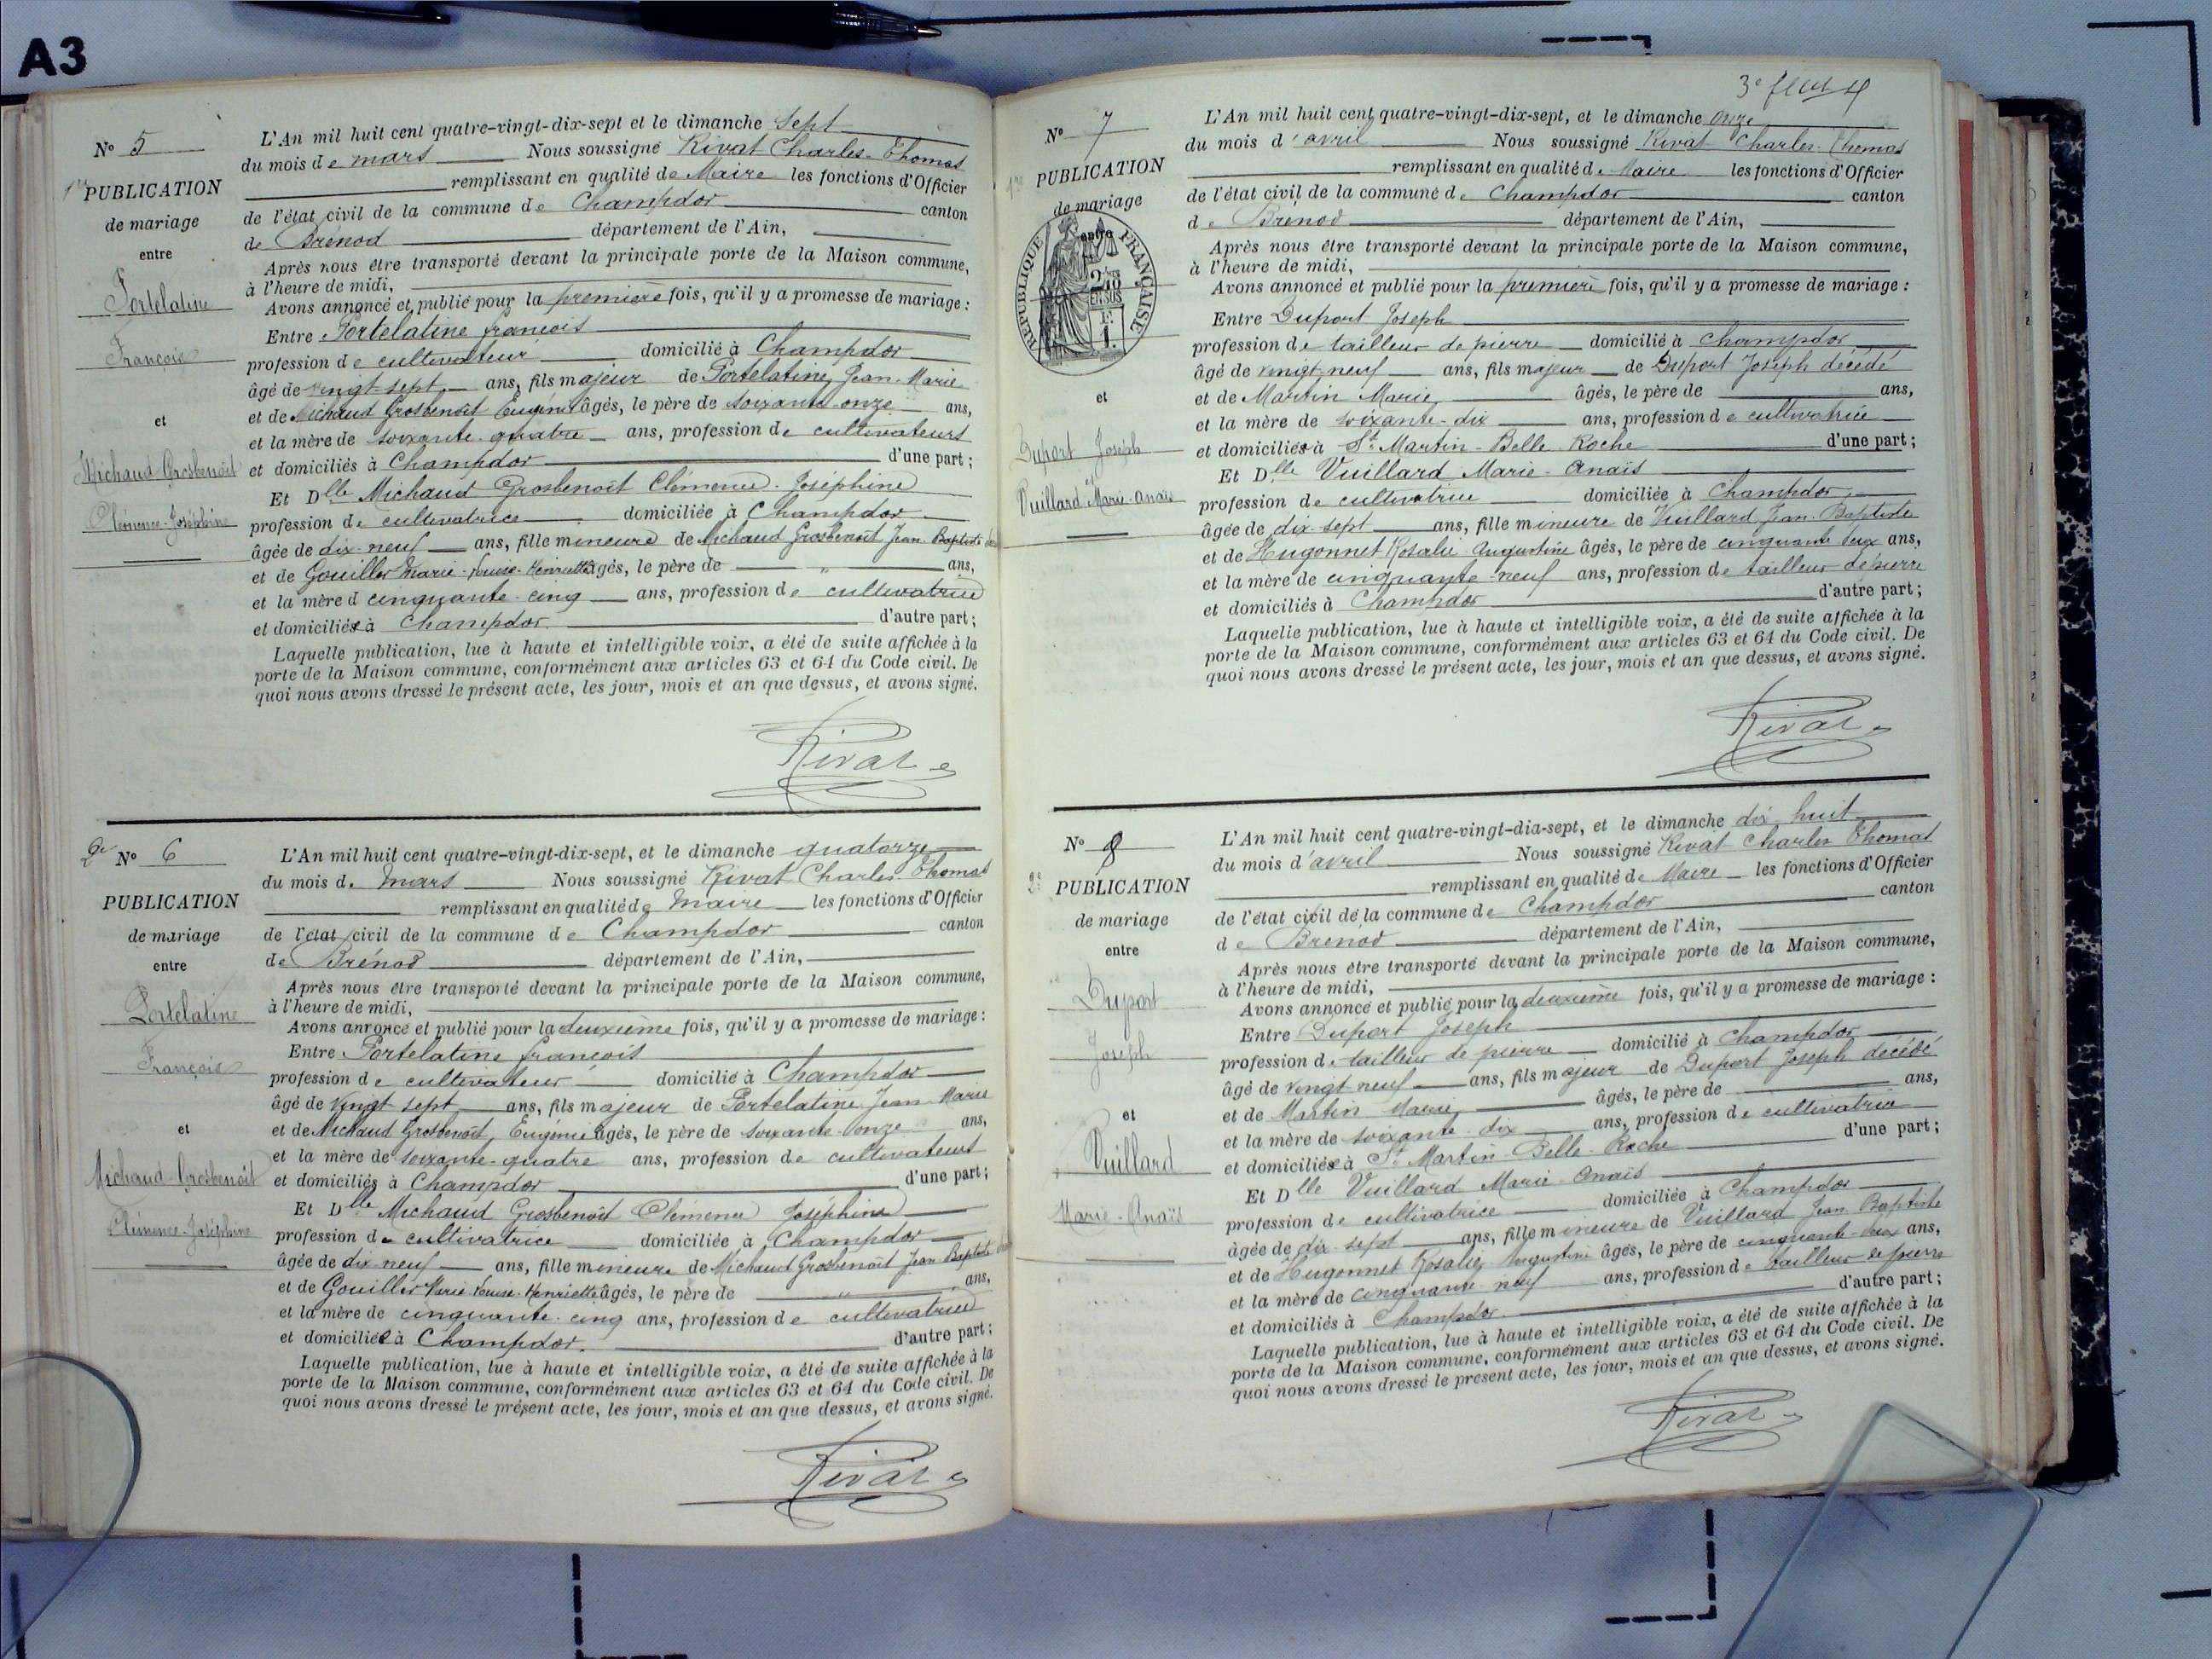 A3
N° 5
1re PUBLICATION
de mariage
entre
Portelatine
François
et
Michaud-Grosbenoit
Clémence-Joséphine
L'An mil huit cent quatre-vingt-dix-sept et le dimanche Sept
du mois de mars Nous soussigné Rivat Charles-Thomas
remplissant en qualité de Maire les fonctions d'Officier
de l'état civil de la commune de Champdor canton
de Brénod département de l'Ain,
Après nous être transporté devant la principale porte de la Maison commune,
à l'heure de midi,
Avons annoncé et publié pour la première fois, qu'il y a promesse de mariage :
Entre Portelatine françois
profession de cultivateur domicilié à Champdor
âgé de vingt-sept ans, fils majeur de Portelatine, Jean-Marie
et de Michaud Grosbenoit Eugénie âgés, le père de soixante-onze ans,
et la mère de soixante-quatre ans, profession de cultivateurs
et domiciliés à Champdor d'une part ;
Et Dlle Michaud Grosbenoit Clémence-Joséphine
profession de cultivatrice domiciliée à Champdor
âgée de dix-neuf ans, fille mineure de Michaud Grosbenoit Jean-Baptiste
et de Gouiller Marie-Louise-Henriette âgés, le père de " ans,
et la mère d cinquante-cinq ans, profession de cultivatrice
et domiciliée à Champdor. d'autre part ;
Laquelle publication, lue à haute et intelligible voix, a été de suite affichée à la
porte de la Maison commune, conformément aux articles 63 et 64 du Code civil. De
quoi nous avons dressé le présent acte, les jour, mois et an que dessus, et avons signé.
Rivat
2e N° 6
PUBLICATION
de mariage
entre
Portelatine
François
et
Michaud-Grosbenoit
Clémence-Joséphine
L'An mil huit cent quatre-vingt-dix-sept, et le dimanche quatorze
du mois de mars Nous soussigné Rivat Charles-Thomas
remplissant en qualité de maire les fonctions d'Officier
de l'état civil de la commune de Champdor canton
de Brénod département de l'Ain,
Après nous être transporté devant la principale porte de la Maison commune,
à l'heure de midi,
Avons annoncé et publié pour la deuxième fois, qu'il y a promesse de mariage :
Entre Portelatine françois
profession de cultivateur domicilié à Champdor
âgé de vingt-sept ans, fils majeur de Portelatine Jean-Marie
et de Michaud Grosbenoit, Eugénie âgés, le père de soixante-onze ans,
et la mère de soixante-quatre ans, profession de cultivateurs
et domiciliés à Champdor d'une part ;
Et Dlle Michaud Grosbenoit Clémence Joséphine
profession de cultivatrice domiciliée à Champdor
âgée de dix-neuf ans, fille mineure de Michaud Grosbenoit Jean-Baptiste
et de Gouiller Marie-Louise-Henriette âgés, le père de " ans,
et la mère de cinquante-cinq ans, profession de cultivatrice
et domiciliée à Champdor. d'autre part ;
Laquelle publication, lue à haute et intelligible voix, a été de suite affichée à la
porte de la Maison commune, conformément aux articles 63 et 64 du Code civil. De
quoi nous avons dressé le présent acte, les jour, mois et an que dessus, et avons signé.
Rivat
N° 7
1re PUBLICATION
de mariage
entre
REPUBLIQUE FRANÇAISE
2/10
EN SUS
et
Duport Joseph
Vuillard Marie-Anaïs
L'An mil huit cent quatre-vingt-dix-sept, et le dimanche onze
du mois d'avril Nous soussigné Rivat Charles-Thomas
remplissant en qualité de Maire les fonctions d'Officier
de l'état civil de la commune de Champdor canton
de Brénod département de l'Ain,
Après nous être transporté devant la principale porte de la Maison commune,
à l'heure de midi,
Avons annoncé et publié pour la première fois, qu'il y a promesse de mariage :
Entre Duport Joseph
profession de tailleur de pierre domicilié à Champdor
âgé de vingt-neuf ans, fils majeur de Duport Joseph décédé
et de Martin Marie, âgés, le père de ans,
et la mère de soixante-dix ans, profession de cultivatrice
et domiciliée à St Martin-Belle-Roche d'une part ;
Et Dlle Vuillard Marie-Anaïs
profession de cultivatrice domiciliée à Champdor
âgée de dix-sept ans, fille mineure de Vuillard Jean-Baptiste
et de Hugonnet Rosalie Augustine âgés, le père de cinquante deux ans,
et la mère de cinquante-neuf ans, profession de tailleur de pierre
et domiciliés à Champdor d'autre part ;
Laquelle publication, lue à haute et intelligible voix, a été de suite affichée à la
porte de la Maison commune, conformément aux articles 63 et 64 du Code civil. De
quoi nous avons dressé le présent acte, les jour, mois et an que dessus, et avons signé.
Rivat
N° 8
2e PUBLICATION
de mariage
entre
Duport
Joseph
et
Vuillard
Marie-Anaïs
L'An mil huit cent quatre-vingt-dix-sept, et le dimanche dix huit
du mois d'avril Nous soussigné Rivat Charles Thomas
remplissant en qualité de Maire les fonctions d'Officier
de l'état civil de la commune de Champdor canton
de Brénod département de l'Ain,
Après nous être transporté devant la principale porte de la Maison commune,
à l'heure de midi,
Avons annoncé et publié pour la deuxième fois, qu'il y a promesse de mariage :
Entre Duport Joseph
profession de tailleur de pierre domicilié à Champdor
âgé de vingt-neuf ans, fils majeur de Duport Joseph décédé
et de Martin Marie, âgés, le père de ans,
et la mère de soixante-dix ans, profession de cultivatrice
et domiciliée à St Martin-Belle-Roche d'une part ;
Et Dlle Vuillard Marie-Anaïs
profession de cultivatrice domiciliée à Champdor
âgée de dix-sept ans, fille mineure de Vuillard Jean Baptiste
et de Hugonnet Rosalie, Augustine âgés, le père de cinquante-deux ans,
et la mère de cinquante-neuf ans, profession de tailleur de pierre
et domiciliés à Champdor. d'autre part ;
Laquelle publication, lue à haute et intelligible voix, a été de suite affichée à la
porte de la Maison commune, conformément aux articles 63 et 64 du Code civil. De
quoi nous avons dressé le présent acte, les jour, mois et an que dessus, et avons signé.
Rivat